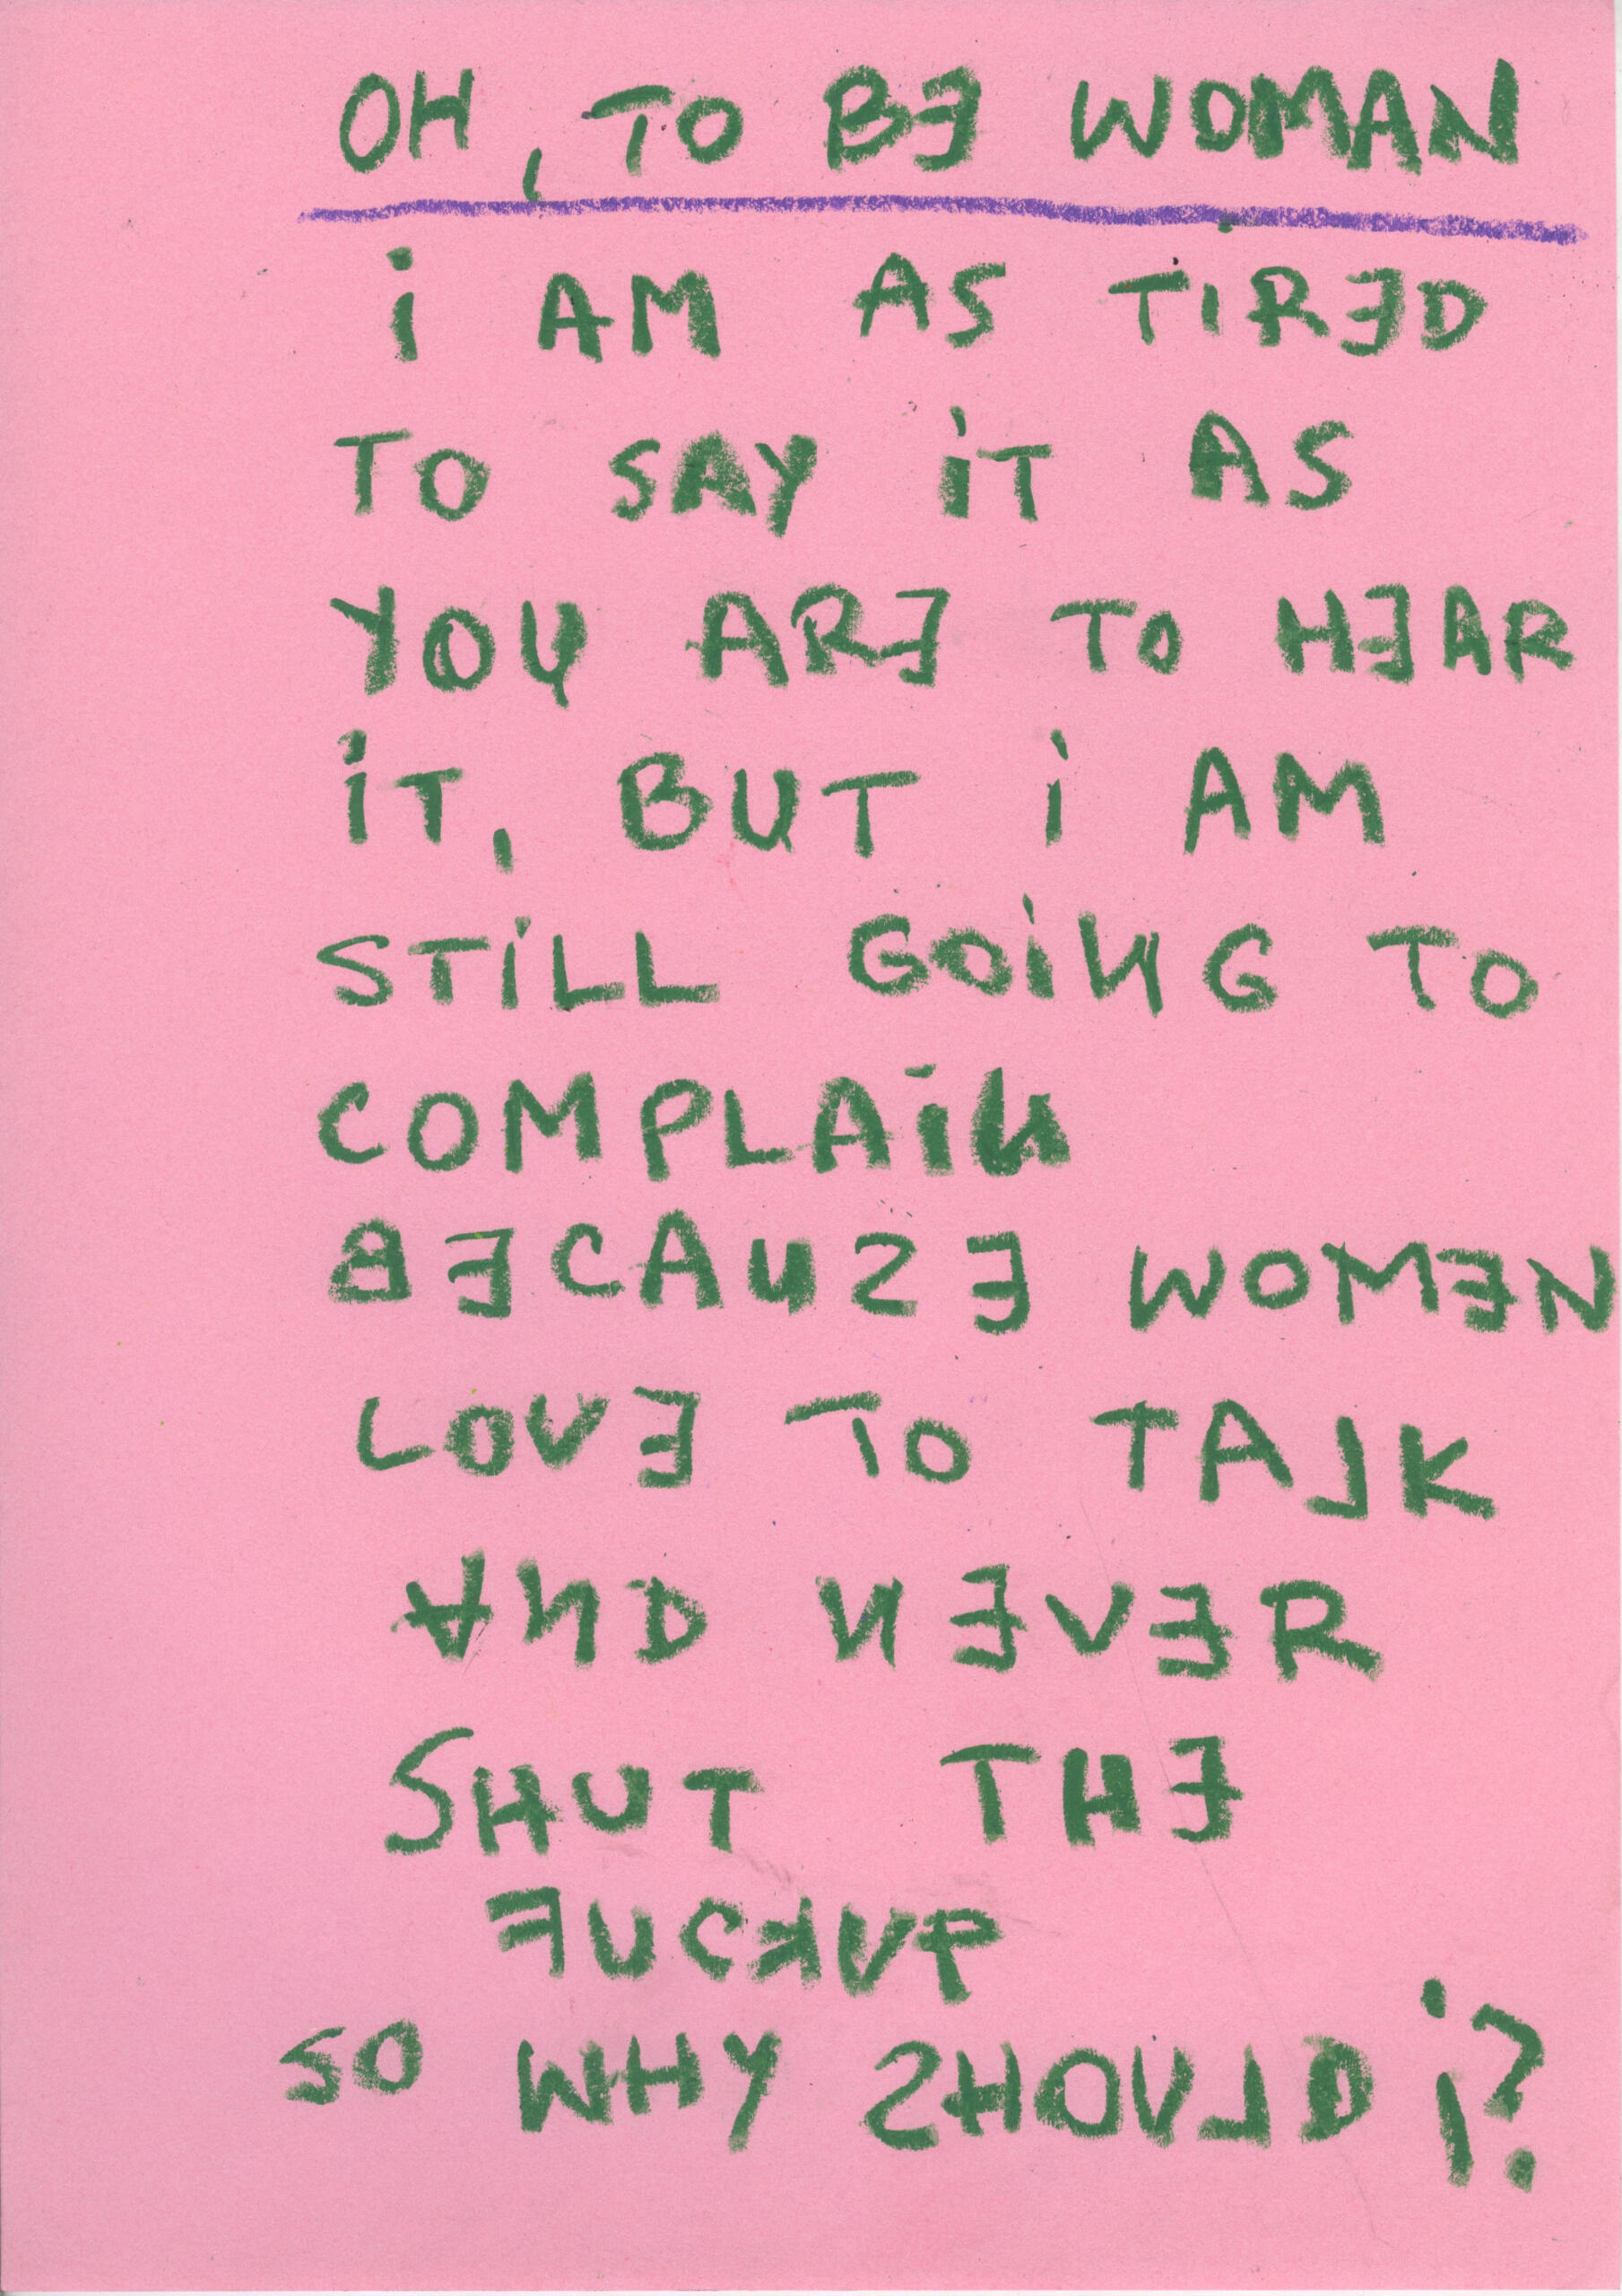 OH, TO BE WOMAN
i AM AS TiRED
TO SAY iT AS
YOU ARE TO HEAR
iT, BUT i AM
STiLL GOiNG TO
COMPLAiN
BECAUSE WOMEN
LOVE TO TALK
AND NEVER
SHUT THE
FUCKUP
SO WHY SHOULD i?